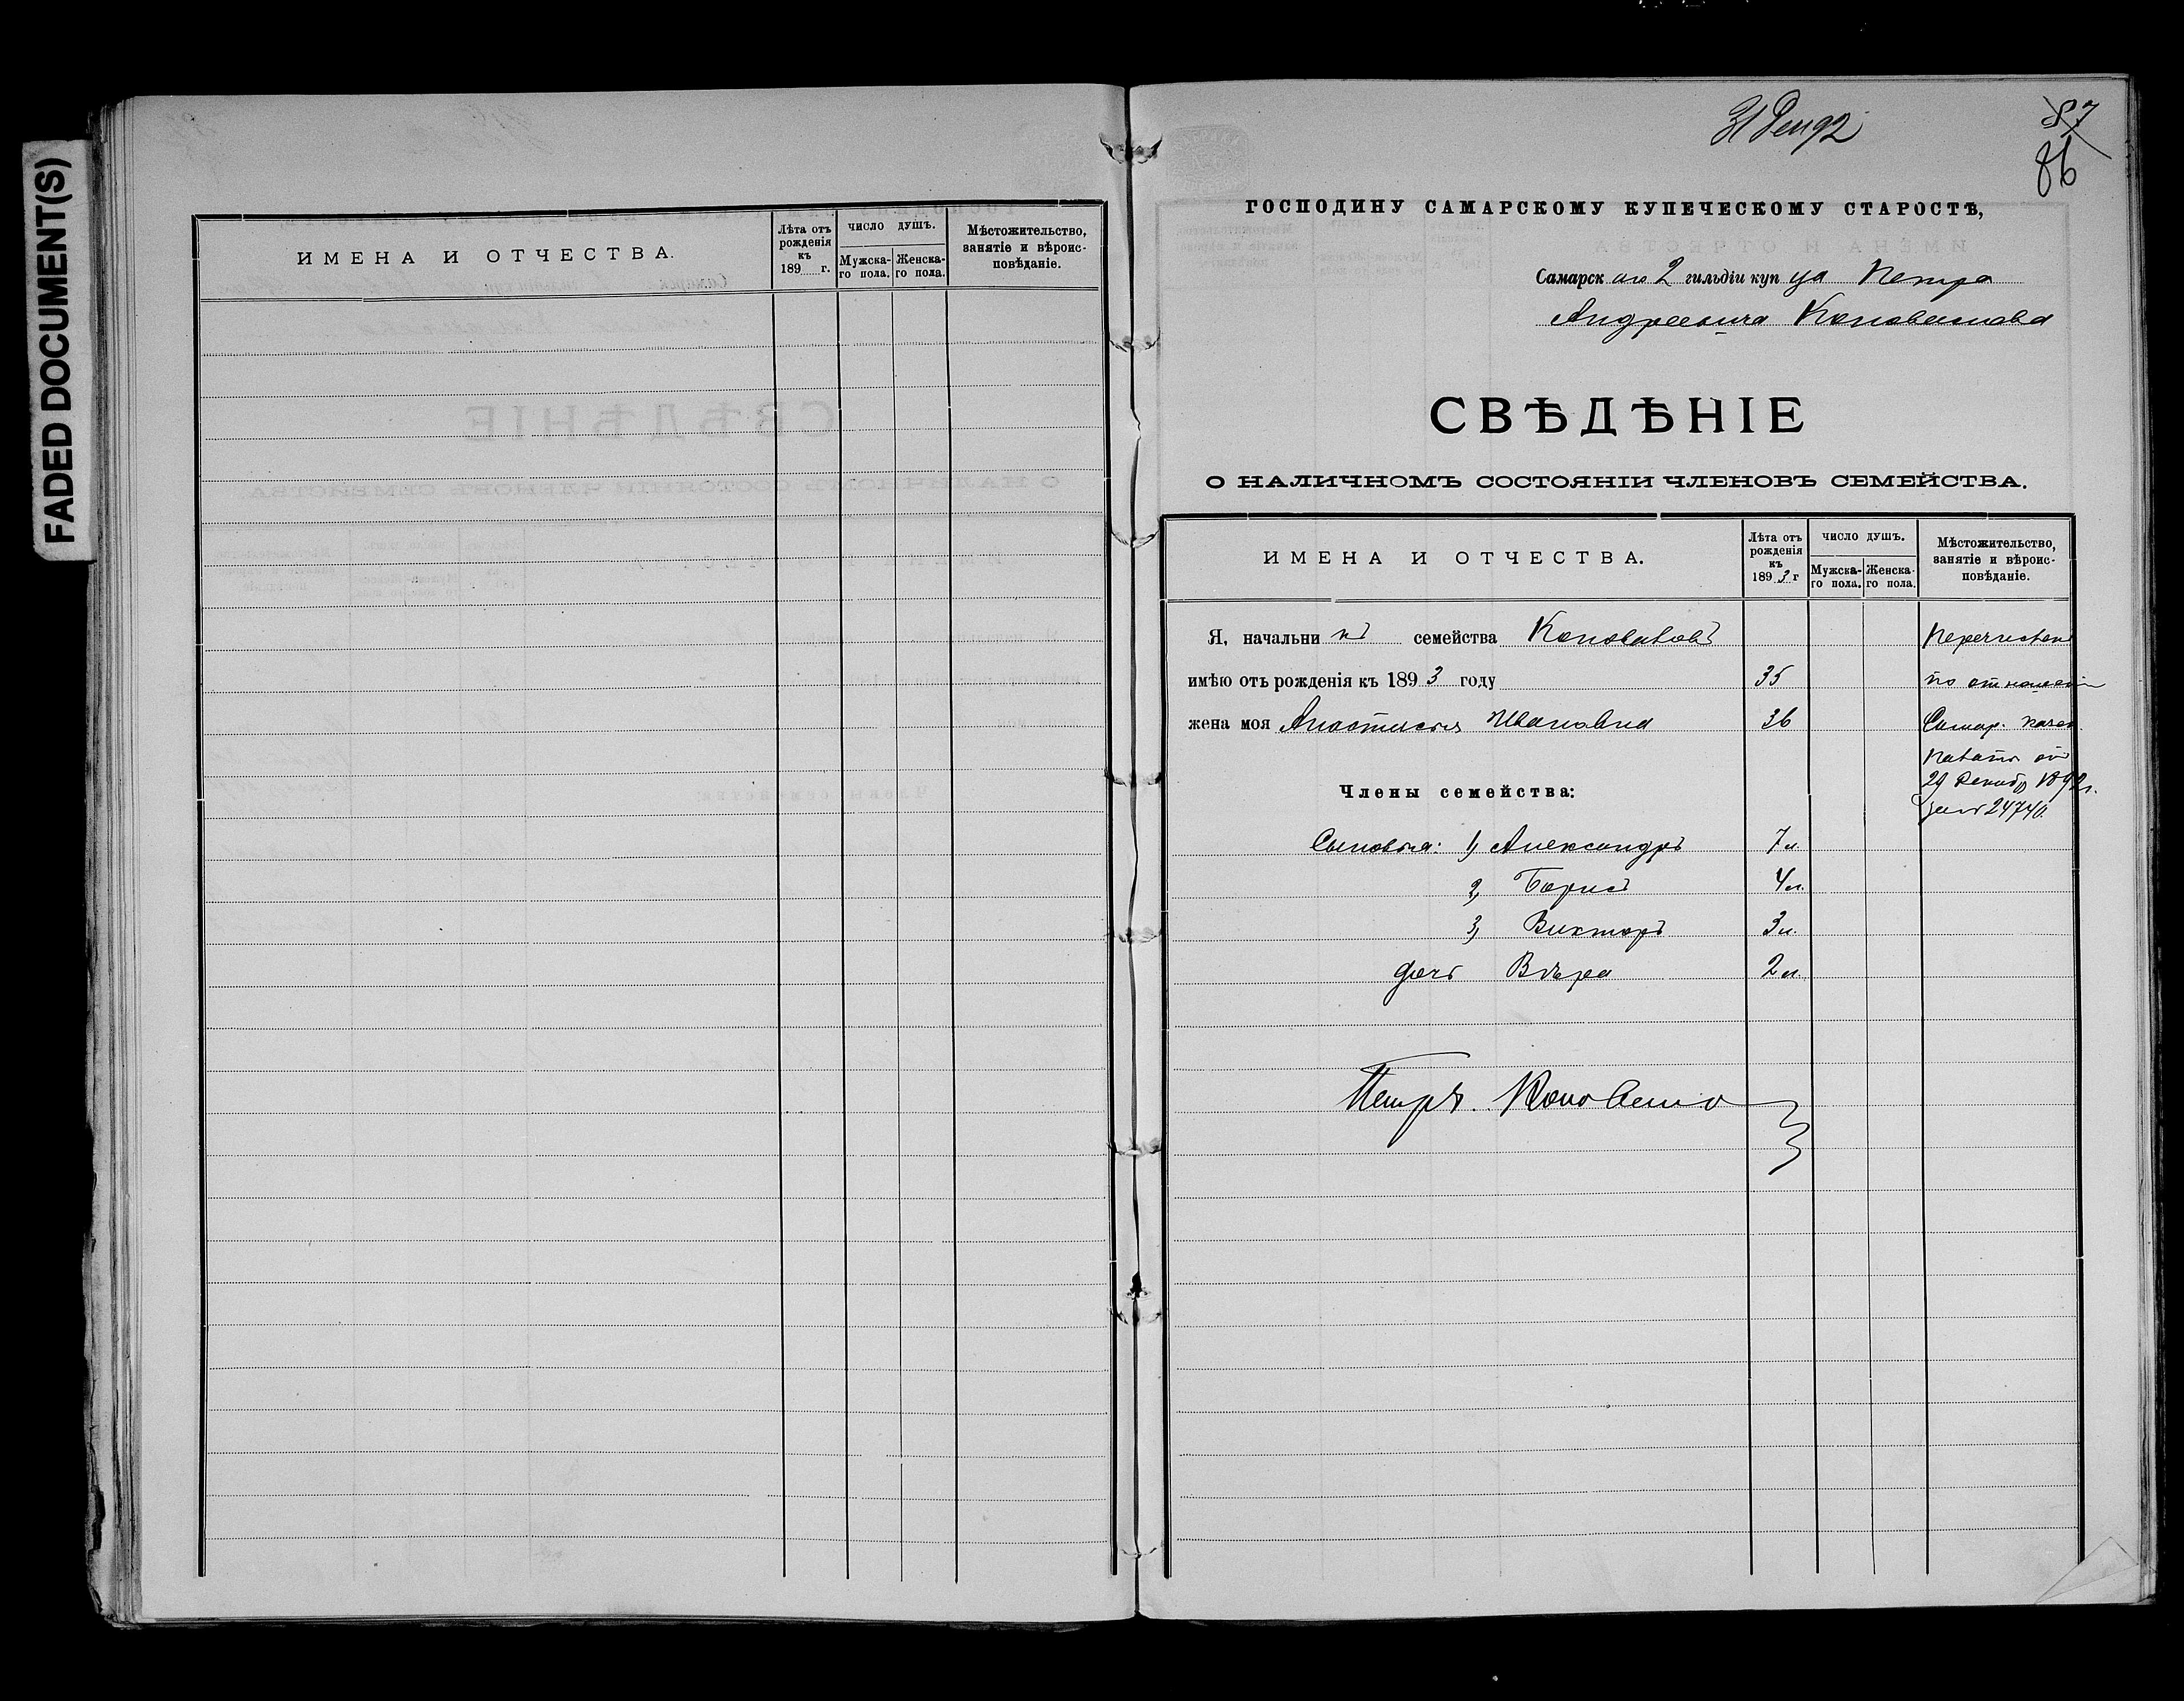 FADED DOCUMENT(S)
ИМЕНА И ОТЧЕСТВА.
Лѣта отъ рожденія къ 189 г.
ЧИСЛО ДУШЪ.
Мужска-го пола.
Женска-го пола.
Мѣстожительство, занятіе и вѣроис-повѣданіе.
31 Дек 92
87
86
ГОСПОДИНУ САМАРСКОМУ КУПЕЧЕСКОМУ СТАРОСТѢ,
Самарскаго 2 гильдіи купца Петра
Андреевича Коновалова
СВѢДѢНІЕ
О НАЛИЧНОМЪ СОСТОЯНІИ ЧЛЕНОВЪ СЕМЕЙСТВА.
ИМЕНА И ОТЧЕСТВА.
Лѣта отъ рожденія къ 1893 г
ЧИСЛО ДУШЪ.
Мужска-го пола.
Женска-го пола.
Мѣстожительство, занятіе и вѣроис-повѣданіе.
Я, начальникъ семейства Коноваловъ
имѣю отъ рожденія къ 1893 году 35
жена моя Анастасія Ивановна 36
Перечислен
по отношені
Самар. казен
палаты отъ
29 Декабр 1892 г.
за № 24740.
Члены семейства:
Сыновья: 1, Александръ 7 л.
2, Борисъ 4 л.
3, Викторъ 3 л.
дочь Вѣра 2 л.
Петръ. Коновалов